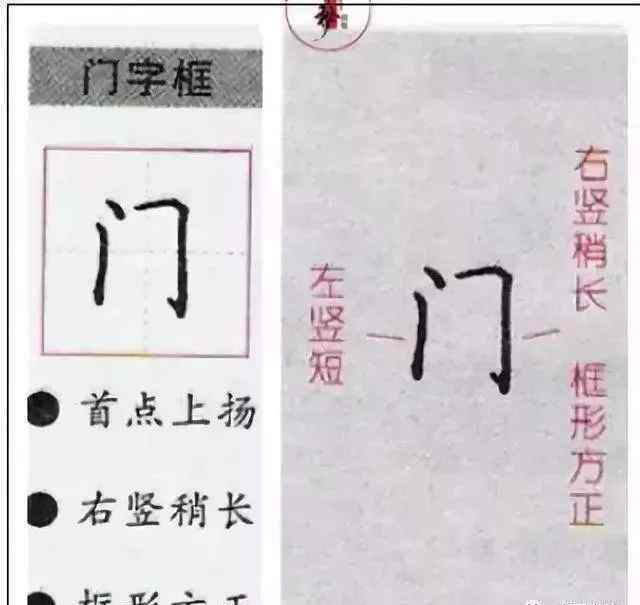 门字框
门
首点上扬
右竖稍长
框形方正
左竖短
门
右竖稍长
框形方正